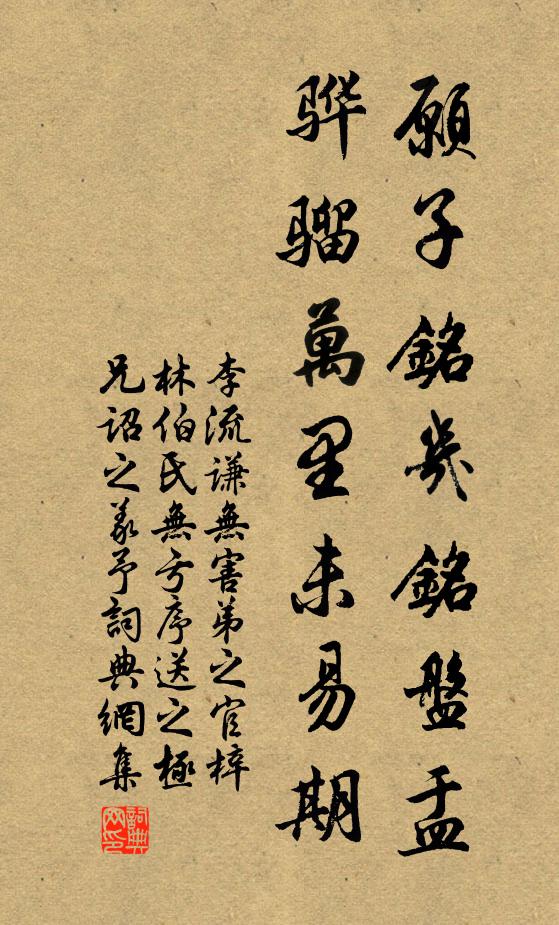 願子銘幾銘盤盂
骅骝萬里未易期
李流谦無害弟之官梓
林伯氏無亏序送之極
兄詔之義予詞典網集
詞典網印